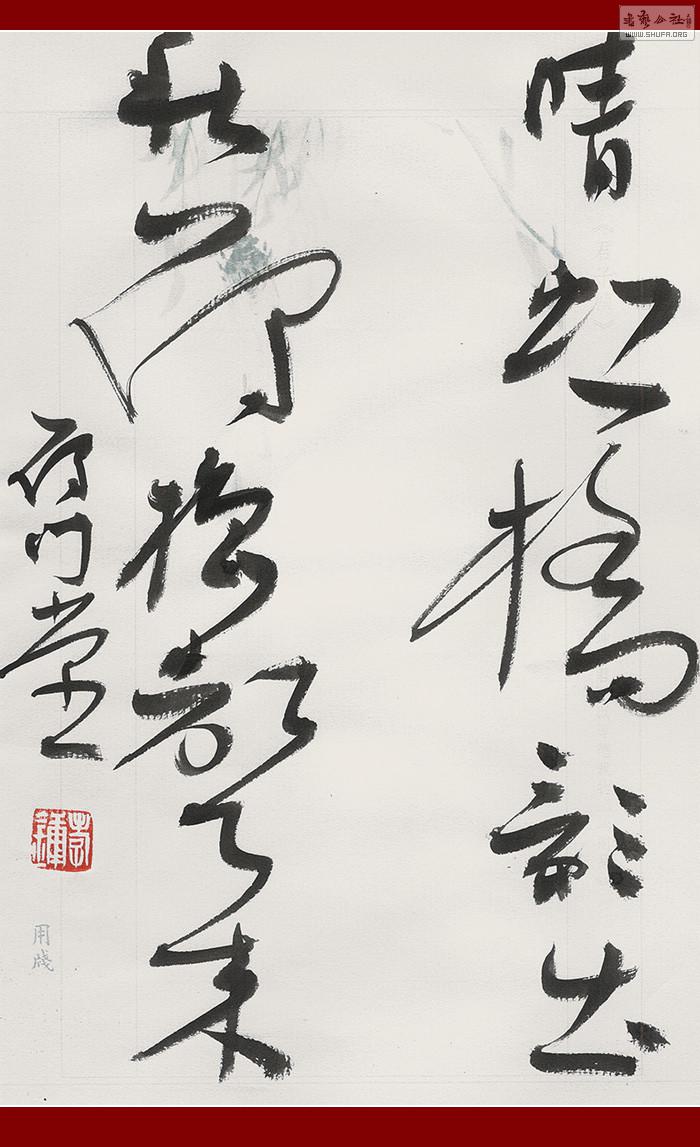 書藝公社
WWW.SHUFA.ORG
晴虹橋影出
秋雁櫓聲來
用牋